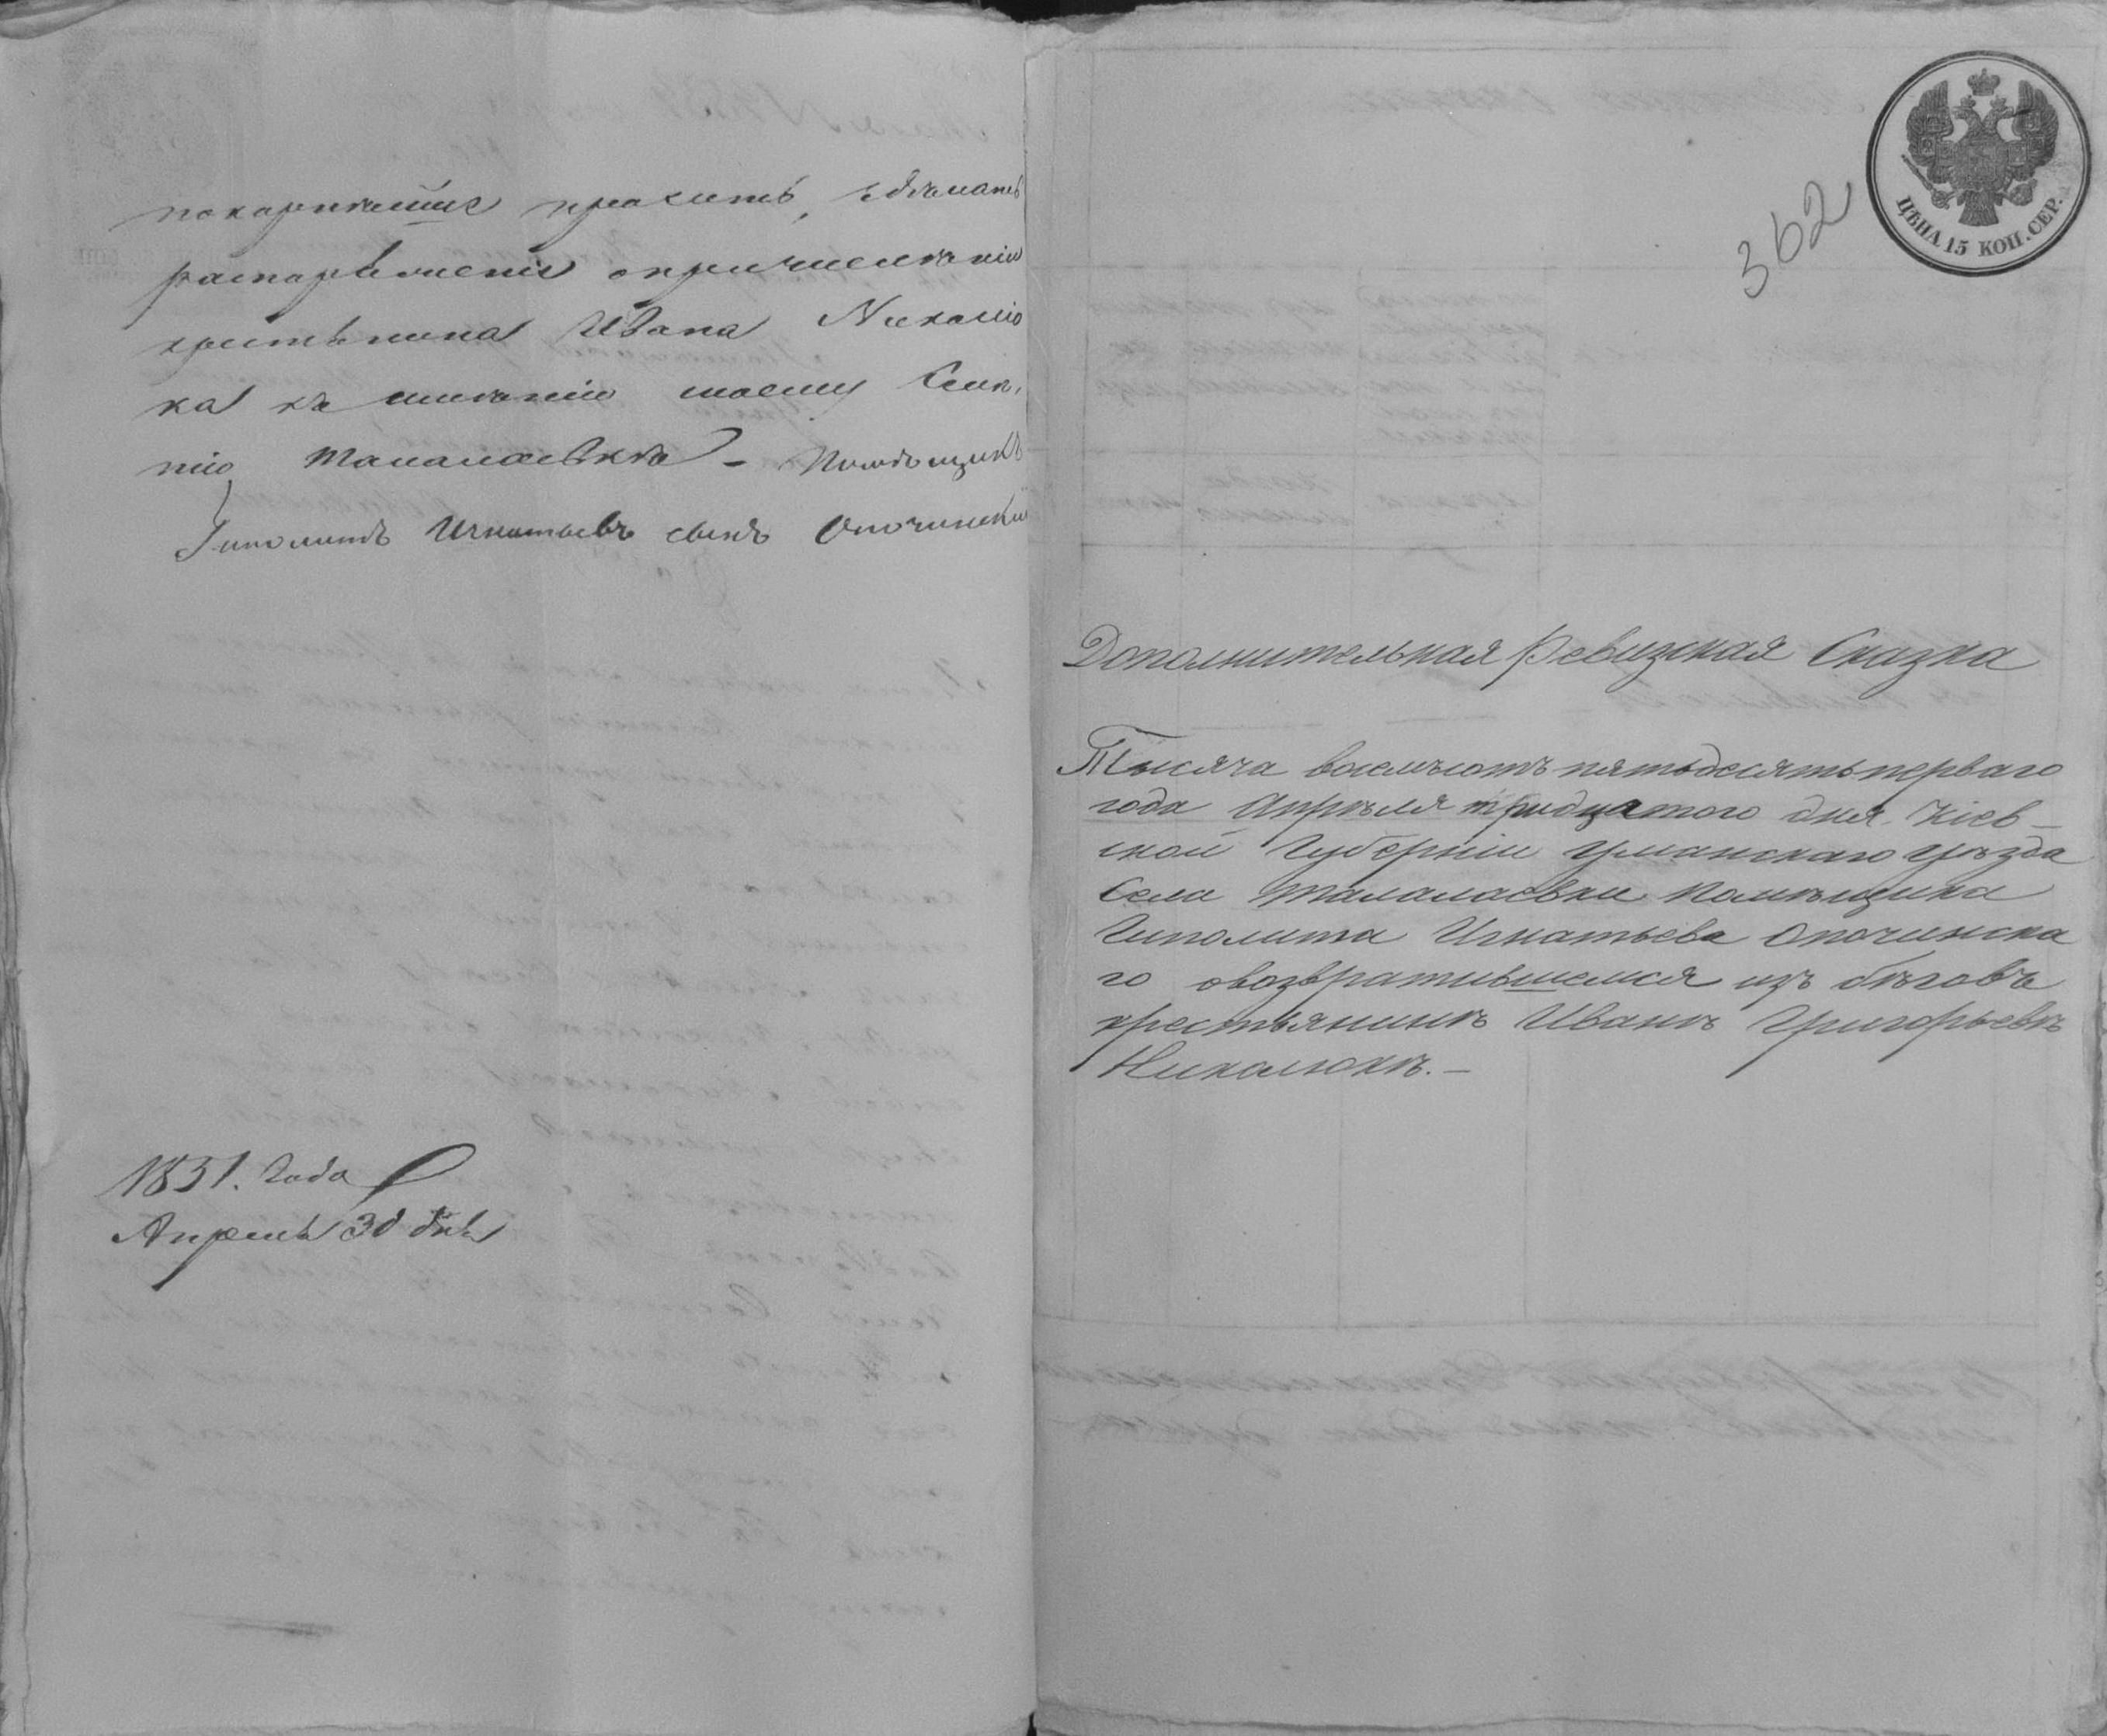 покорнейше просить, зделать
распоряжение опричислении
крестьнина Ивана Николю
ка къ имению моему Селе,
нию Талалаевке - Помѣщикъ
Гиполитъ Игнатьевъ сынъ Опочинский
1851. Года
Апрель 30 дня
362
ЦѢНА 15 КОП. СЕР.
Дополнительная Ревизская Сказка
Тысяча восемьсотъ пятьдесятьперваго
года Апрѣля тридцатого дня. Кіев-
ской Губерніи Уманскаго Уѣзда
Села Талалаевки Помѣщика
Гиполита Игнатьева Опочинска
го овозвратившемся изъ бѣговъ
крестьянинѣ Иванѣ Григорьевѣ
Николюкѣ.-